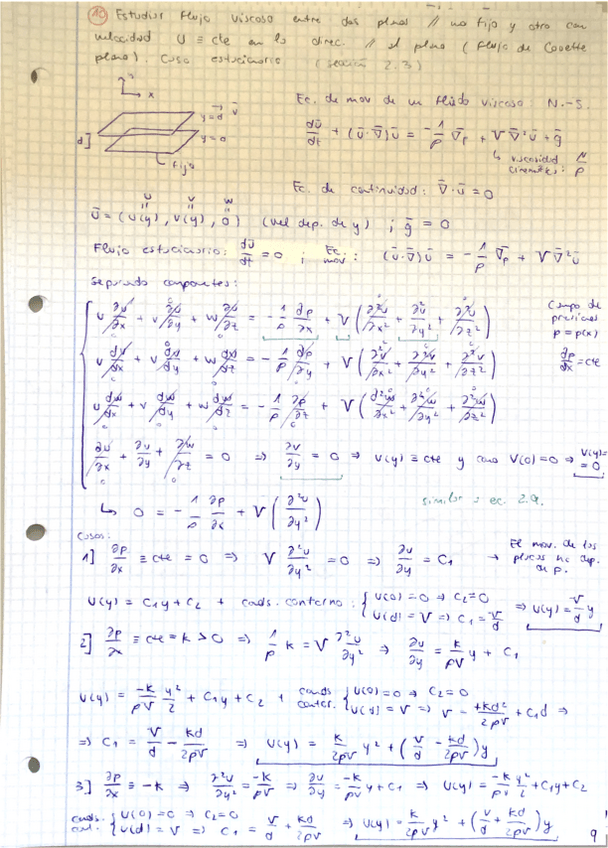 10 Estudiar flujo viscoso entre dos planos // uno fijo y otro con
velocidad U ≡ cte en la direc. // al plano (flujo de Couette
plano). Caso estacionario (sección 2.3)
x
y=d
y=0
d
fijo
Ec. de mov de un fluido viscoso: N.-S.
dū/dt + (ū·∇̄)ū = -1/ρ ∇̄p + ν∇̄²ū + ḡ
viscosidad cinemática: μ/ρ
Ec. de continuidad: ∇̄·ū = 0
ū = (u(y), v(y), 0) (vel dep. de y) ; ḡ = 0
u v w
Flujo estacionario: dū/dt = 0 ; Ec. mov: (ū·∇̄)ū = -1/ρ ∇̄p + ν∇̄²ū
Separando componentes:
u ∂u/∂x + v ∂u/∂y + w ∂u/∂z = -1/ρ ∂p/∂x + ν(∂²u/∂x² + ∂²u/∂y² + ∂²u/∂z²)
Campo de presiones p = p(x)
u ∂v/∂x + v ∂v/∂y + w ∂v/∂z = -1/ρ ∂p/∂y + ν(∂²v/∂x² + ∂²v/∂y² + ∂²v/∂z²)
∂p/∂x = cte
u ∂w/∂x + v ∂w/∂y + w ∂w/∂z = -1/ρ ∂p/∂z + ν(∂²w/∂x² + ∂²w/∂y² + ∂²w/∂z²)
∂u/∂x + ∂v/∂y + ∂w/∂z = 0 ⇒ ∂v/∂y = 0 ⇒ v(y) ≡ cte y como v(0)=0 ⇒ v(y)=0
↳ 0 = -1/ρ ∂p/∂x + ν(∂²u/∂y²)
similar a ec. 2.9.
Casos:
1] ∂p/∂x ≡ cte = 0 ⇒ ν ∂²u/∂y² = 0 ⇒ ∂u/∂y = C1 → El mov. de las placas no dep. de p.
u(y) = C1y + C2 + conds. contorno: { u(0)=0 ⇒ C2=0
u(d)=V ⇒ C1 = V/d ⇒ u(y) = V/d y
2] ∂p/∂x ≡ cte = k > 0 ⇒ 1/ρ k = ν ∂²u/∂y² ⇒ ∂u/∂y = k/ρν y + C1
u(y) = -k/ρν y²/2 + C1y + C2 + conds contor. { u(0)=0 ⇒ C2=0
u(d)=V ⇒ V = +kd²/2ρν + C1d ⇒
⇒ C1 = V/d - kd/2ρν ⇒ u(y) = k/2ρν y² + (V/d - kd/2ρν)y
3] ∂p/∂x ≡ -k ⇒ ∂²u/∂y² = -k/ρν ⇒ ∂u/∂y = -k/ρν y + C1 ⇒ u(y) = -k/ρν y²/2 + C1y + C2
conds. cont. { u(0)=0 ⇒ C2=0
u(d)=V ⇒ C1 = V/d + kd/2ρν ⇒ u(y) = k/2ρν y² + (V/d + kd/2ρν)y
9